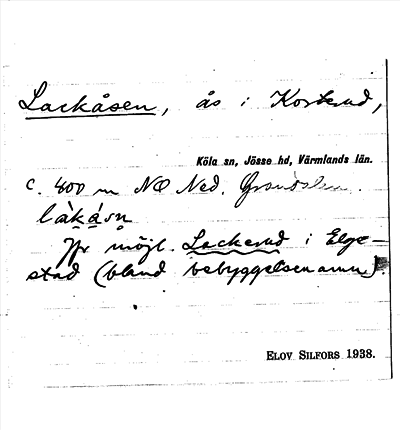 Lackåsen, ås i Korterud,
Köla sn, Jösse hd, Värmlands län.
c. 400 m NO Ned.
làkásn
Jfr möjl. Lackerud i Elge-
stad (bland bebyggelsenamn).
ELOV SILFORS 1938.